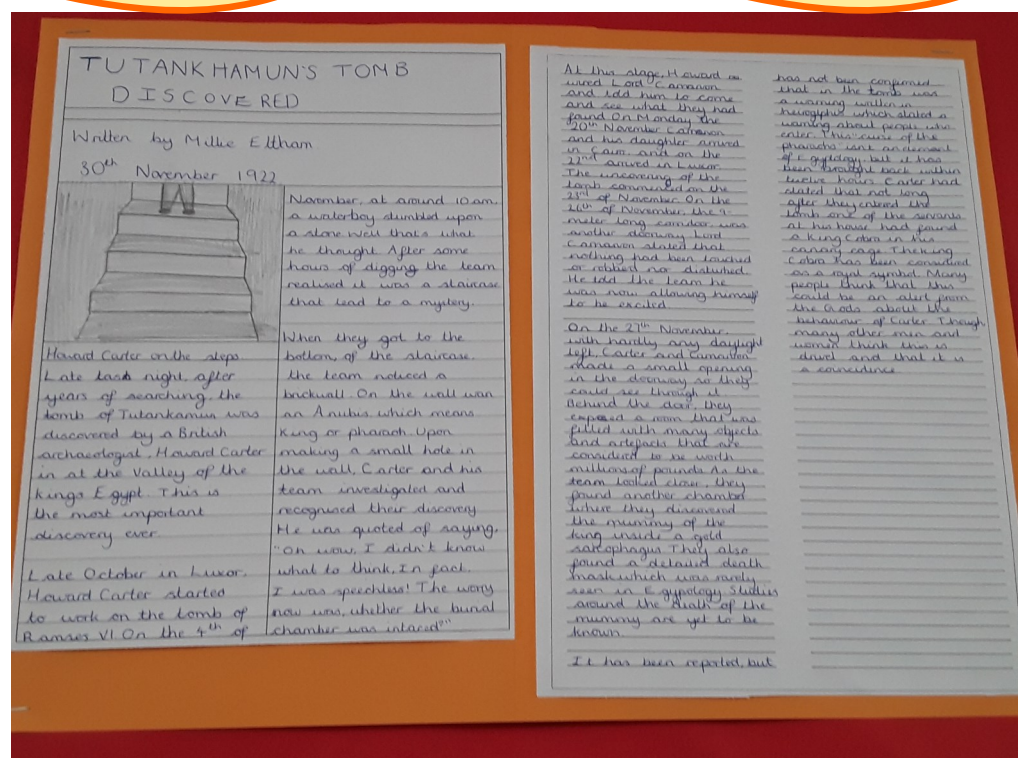 TUTANKHAMUN'S TOMB
DISCOVERED
Written by Millie Eltham
30th November 1922
Howard Carter on the steps
Late last night, after
years of searching, the
tomb of Tutankamun was
discovered by a British
archaeologist, Howard Carter
in at the Valley of the
Kings Egypt. This is
the most important
discovery ever.
Late October in Luxor,
Howard Carter started
to work on the tomb of
Ramses VI On the 4th of
November, at around 10am,
a waterboy stumbled upon
a stone. Well that's what
he thought After some
hours of digging the team
realised it was a staircase
that lead to a mystery.
When they got to the
bottom, of the staircase,
the team noticed a
brickwall. On the wall wan
an Anubis which means
King or pharaoh. Upon
making a small hole in
the wall, Carter and his
team investigated and
recognised their discovery
He was quoted of saying,
"Oh wow, I didn't know
what to think, In fact,
I was speechless! The worry
now was, whether the burial
chamber was intaced"
At this stage, Howard
wired Lord Carnavon
and told him to come
and see what they had
found On Monday the
20th November Carnavon
and his daughter arrived
in Cairo, and on the
22nd arrived in Luxor.
The uncovering of the
tomb commenced on the
23rd of November. On the
26th of November, the 9-
meter long corridor, was
another doorway Lord
Carnavon stated that
nothing had been touched
or robbed nor disturbed.
He told the team he
was now allowing himself
to be excited.
On the 27th November,
with hardly any daylight
left, Carter and Carnavon
made a small opening
in the doorway so they
could see through it
Behind the door, they
exposed a room that was
filled with many objects
and artefacts that are
considerd to be worth
millions of pounds As the
team looked closer, they
found another chamber
where they discovered
the mummy of the
king inside a gold
sarcophagus They also
found a detailed death
mask which was rarely
seen in Egypology Studies
around the death of the
mummy are yet to be
known.
It has been reported, but
has not been confirmed
that in the tomb was
a warning written in
hieroglyphic which stated a
warning about people who
enter. This curse of the
pharaohs isnt an element
of Egyptology but it has
been brought back within
twelve hours Carter had
stated that not long
after they entered the
tomb one of the servants
at his house had found
a King Cobra in his
canary cage The king
Cobra has been considered
as a royal symbol. Many
people think that this
could be an alert from
the Gods about the
behaviour of Carter. Though
many other men and
women think this is
drivel and that it is
a coincidence